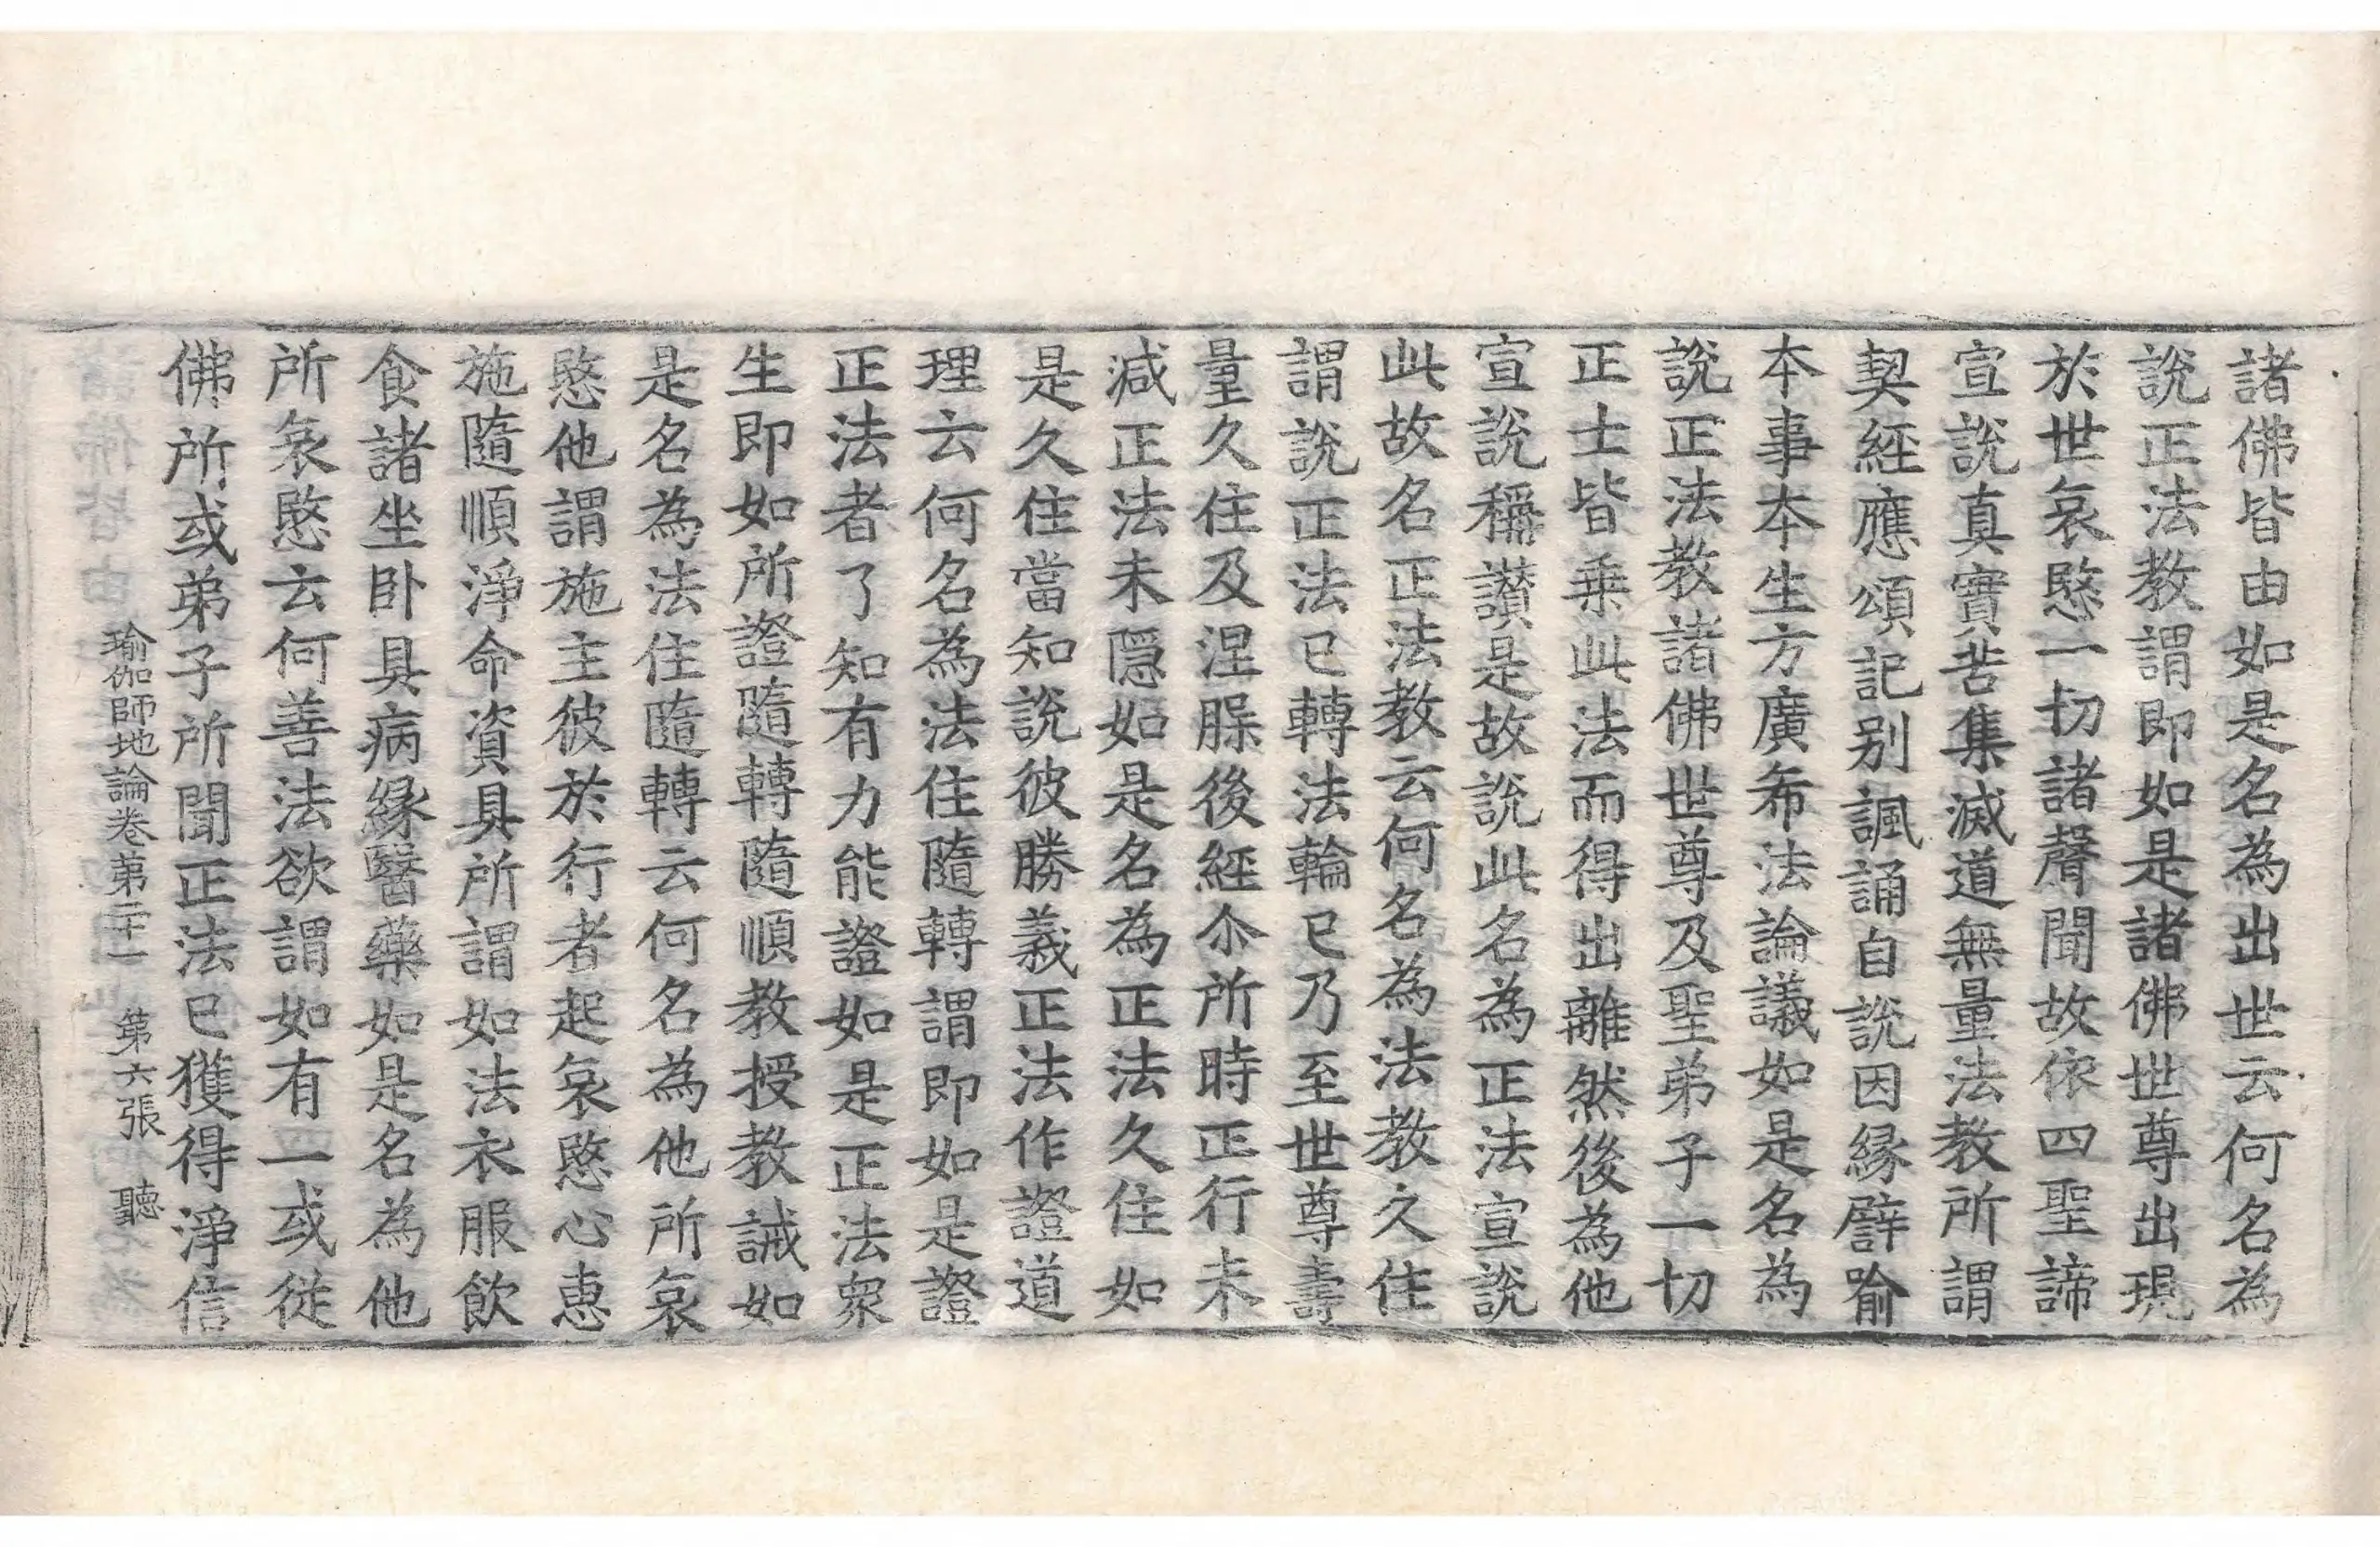 諸佛皆由如是名為出世云何名為
說正法教謂即如是諸佛世尊出現
於世哀愍一切諸聲聞故依四聖諦
宣說真實苦集滅道無量法教所謂
契經應頌記別諷誦自說因縁譬喻
本事本生方廣希法論議如是名為
說正法教諸佛世尊及聖弟子一切
正士皆乗此法而得出離然後為他
宣說稱讃是故說此名為正法宣說
此故名正法教云何名為法教久住
謂說正法已轉法輪已乃至世尊壽
量久住及涅槃後經尒所時正行未
減正法未隱如是名為正法久住如
是久住當知說彼勝義正法作證道
理云何名為法住隨轉謂即如是證
正法者了知有力能證如是正法衆
生即如所證隨轉隨順教授教誡如
是名為法住隨轉云何名為他所哀
愍他謂施主彼於行者起哀愍心恵
施隨順淨命資具所謂如法衣服飲
食諸坐卧具病縁醫藥如是名為他
所哀愍云何善法欲謂如有一或從
佛所或弟子所聞正法已獲得淨信
瑜伽師地論卷第二十一 第六張 聽